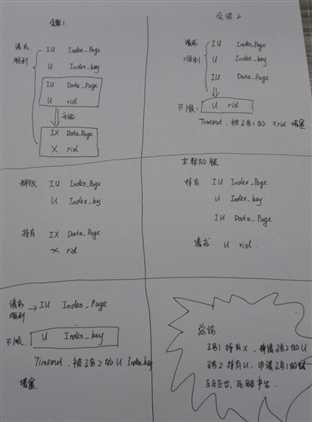 请求
顺利
IU Index_Page
U Index_key
IU Data_Page
U rid
升级
IX Data_Page
X rid
2
请求
顺利
IU Index_Page
U Index_key
IU Data_Page
不顺: U rid
Timeout, 被 1 的 X rid 堵塞
释放 IU Index_Page
U Index_key
持有 IX Data_Page
X rid
持有 IU Index_Page
U Index_key
IU Data_Page
请求 U rid
请求
顺利
IU Index_Page
不顺: U Index_key
Timeout, 被 2 的 U Index_key
堵塞
总结
1 持有 X, 申请 2 的 U
2 持有 U, 申请 1 的